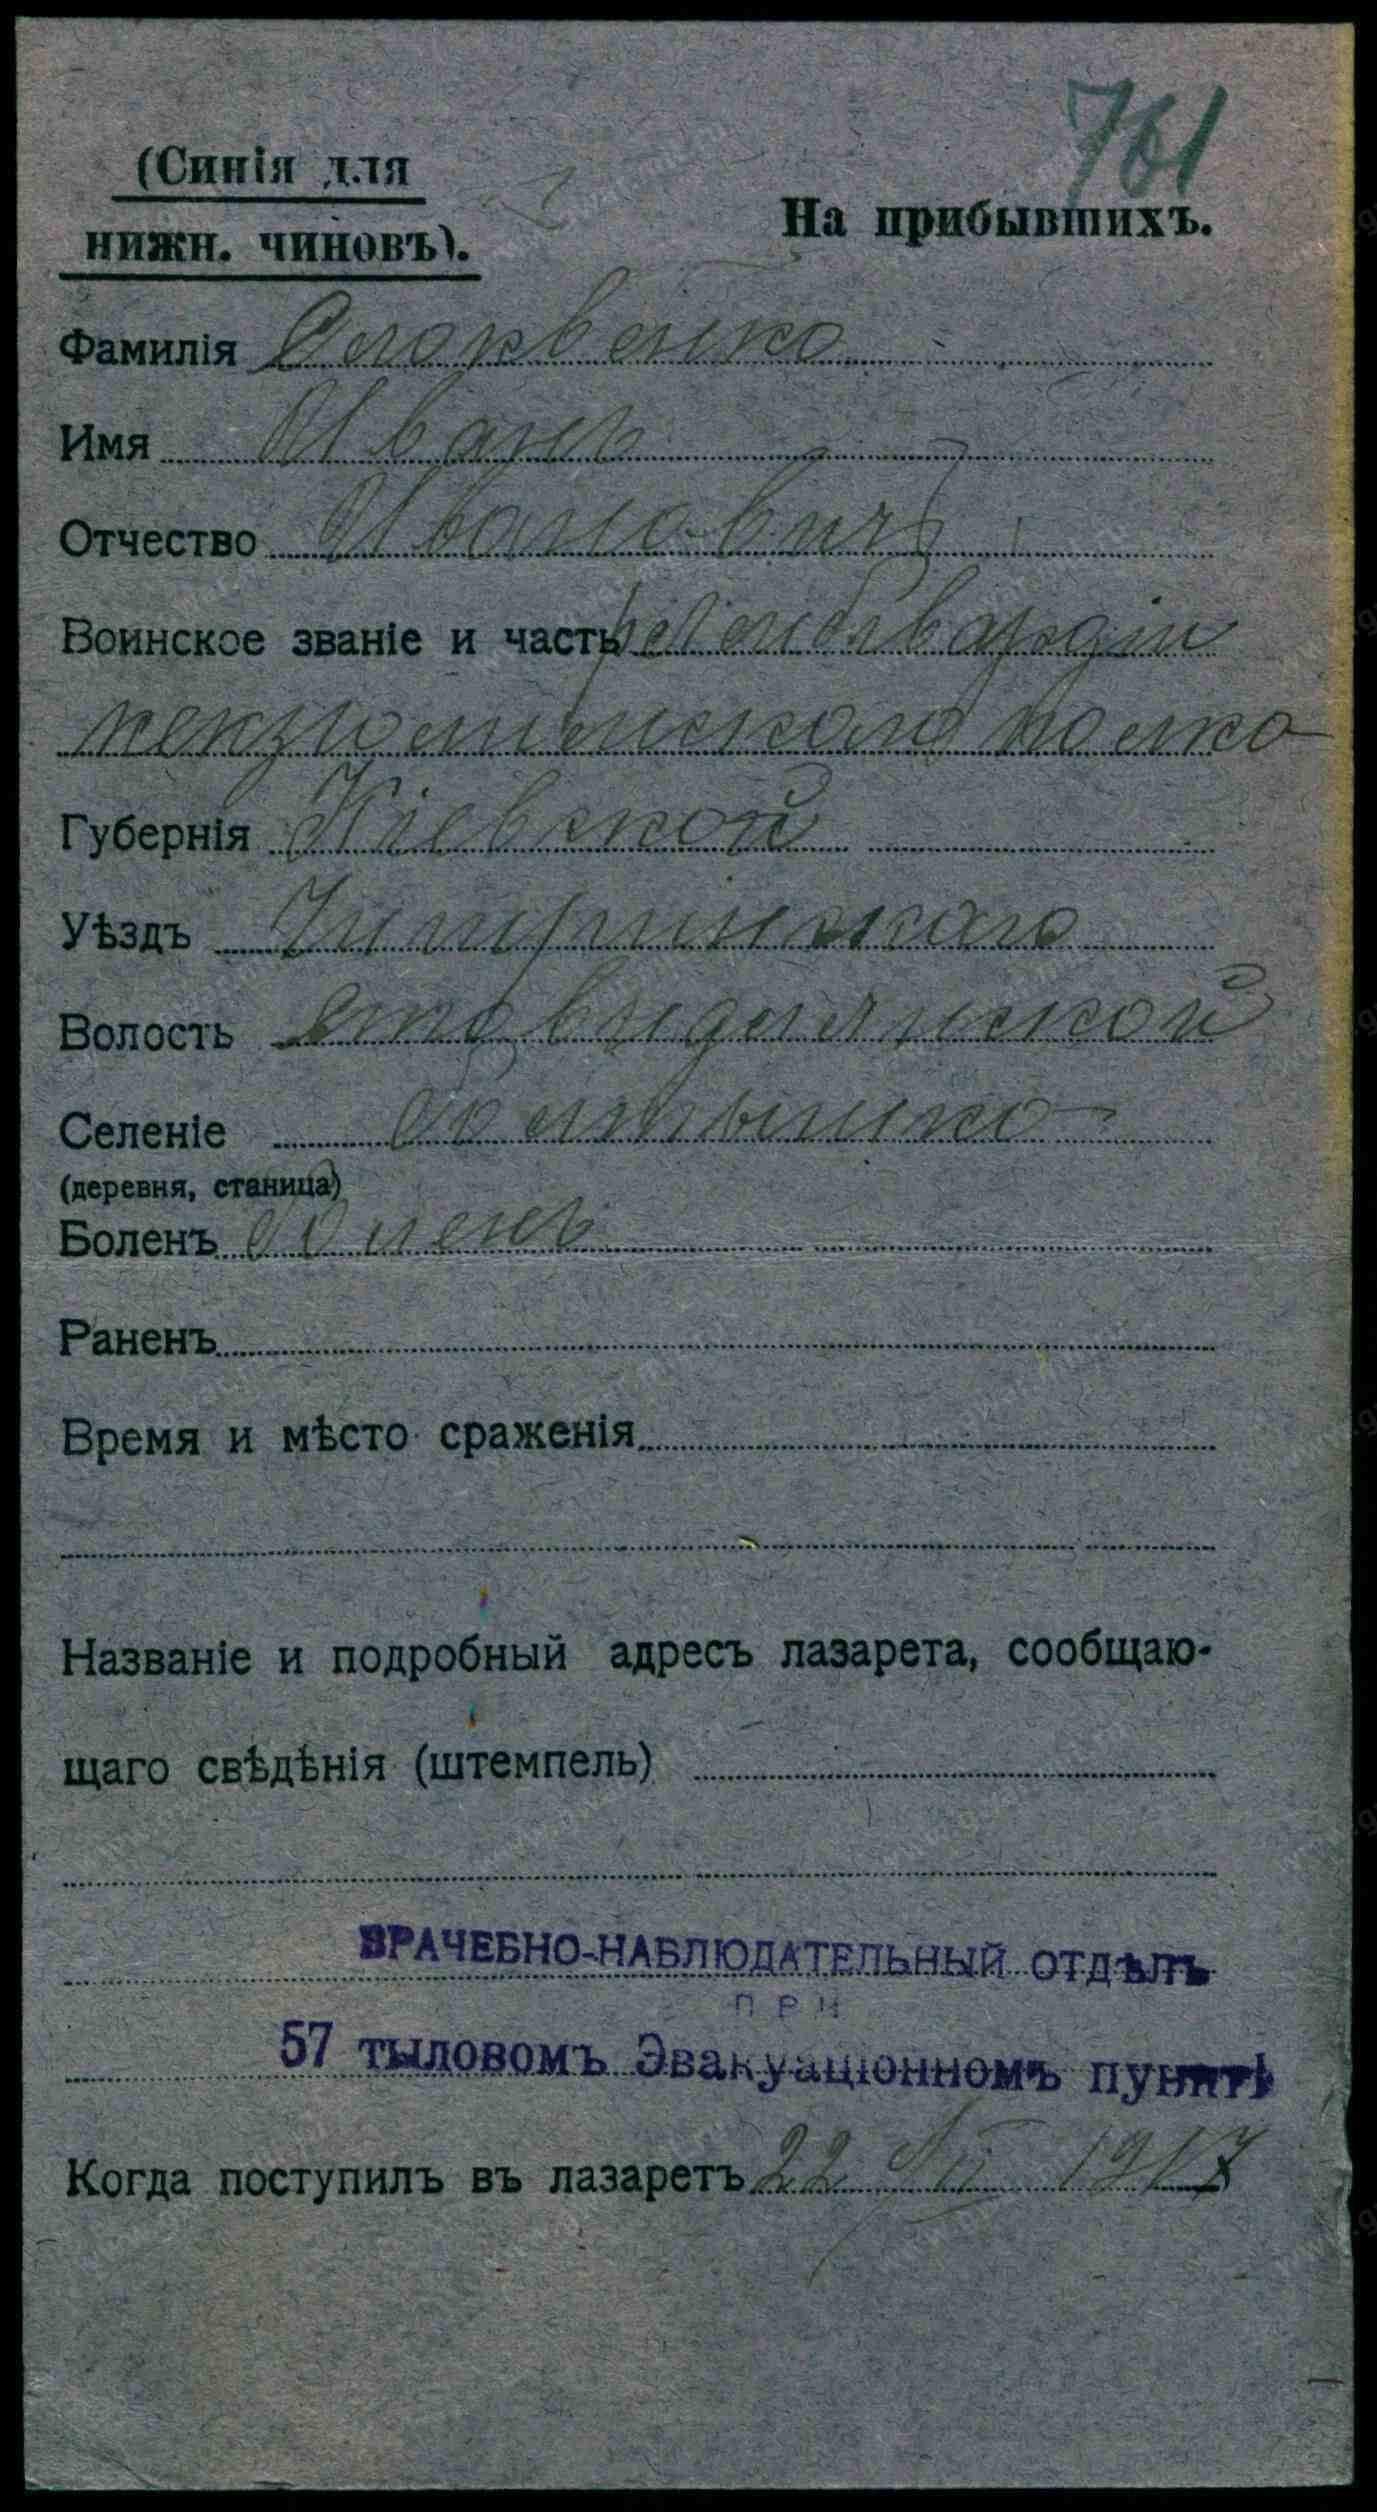 761
(Синія для
нижн. чиновъ).
На прибывшихъ.
Фамилія Слоквенко
Имя Иванъ
Отчество Ивановичъ
Воинское званіе и часть ряд лейбгвардіи
кекзгольмскаго полка
Губернія Кіевской
Уѣздъ Чигринскаго
Волость
Селеніе Болтышко
(деревня, станица)
Боленъ боленъ
Раненъ
Время и мѣсто сраженія
Названіе и подробный адресъ лазарета, сообщаю-
щаго свѣдѣнія (штемпель)
ВРАЧЕБНО-НАБЛЮДАТЕЛЬНЫЙ ОТДѢЛЪ
ПРИ
57 тыловомъ Эвакуаціонномъ пунктѣ
Когда поступилъ въ лазаретъ 22 1917